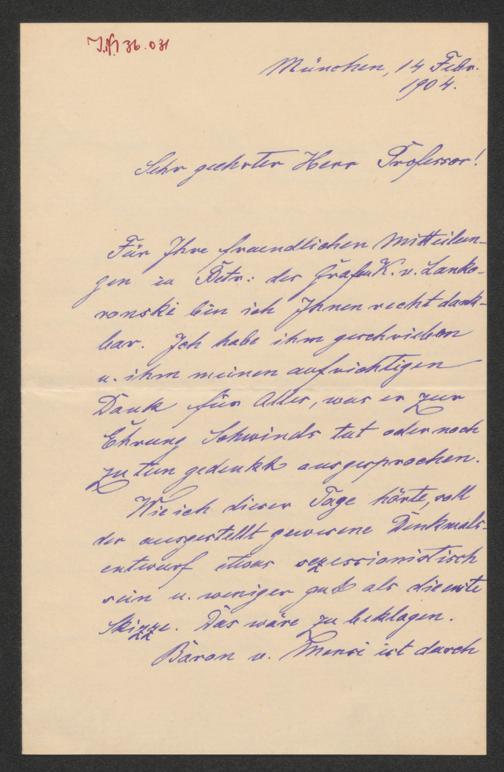 I.N. 36.031
München, 14 Febr.
1904.
Sehr geehrter Herr Professor!
Für Ihre freundlichen Mitteilun-
gen in Betr: des Grafen K. v. Lanko-
ronski bin ich Ihnen recht dank-
bar. Ich habe ihm geschrieben
u. ihm meinen aufrichtigen
Dank für Alles, was er zur
Ehrung Schwinds tat oder noch
zu tun gedenkt ausgesprochen.
Wie ich dieser Tage hörte, soll
der ausgestellt gewesene Denkmals-
entwurf etwas sezessionistisch
sein u. weniger gut als die erste
Skizze. Das wäre zu beklagen.
Baron v. ist durch